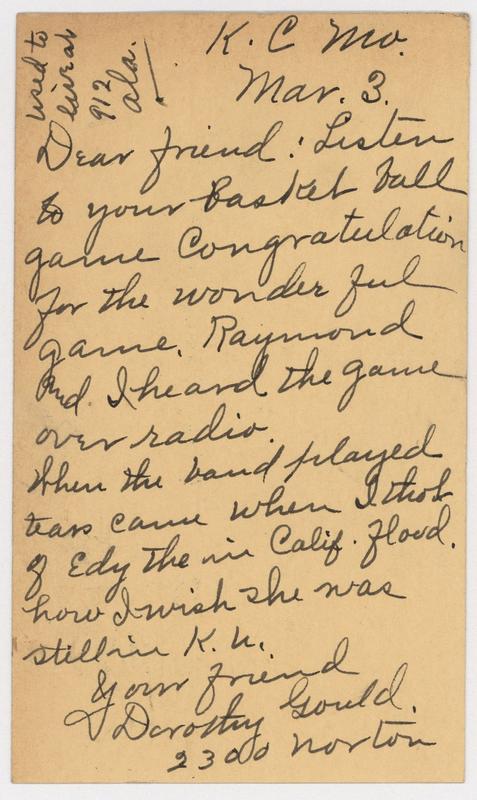 used to
live at
912
Ala.
K. C Mo.
Mar. 3.
Dear friend: Listen
to your basket ball
game Congratulation
for the wonder ful
game. Raymond
and I heard the game
over radio.
When the band played
tears came when I thot
of Edy the in Calif. flood.
how I wish she was
still in K. U.
Your friend
Dorothy Gould.
2300 Norton